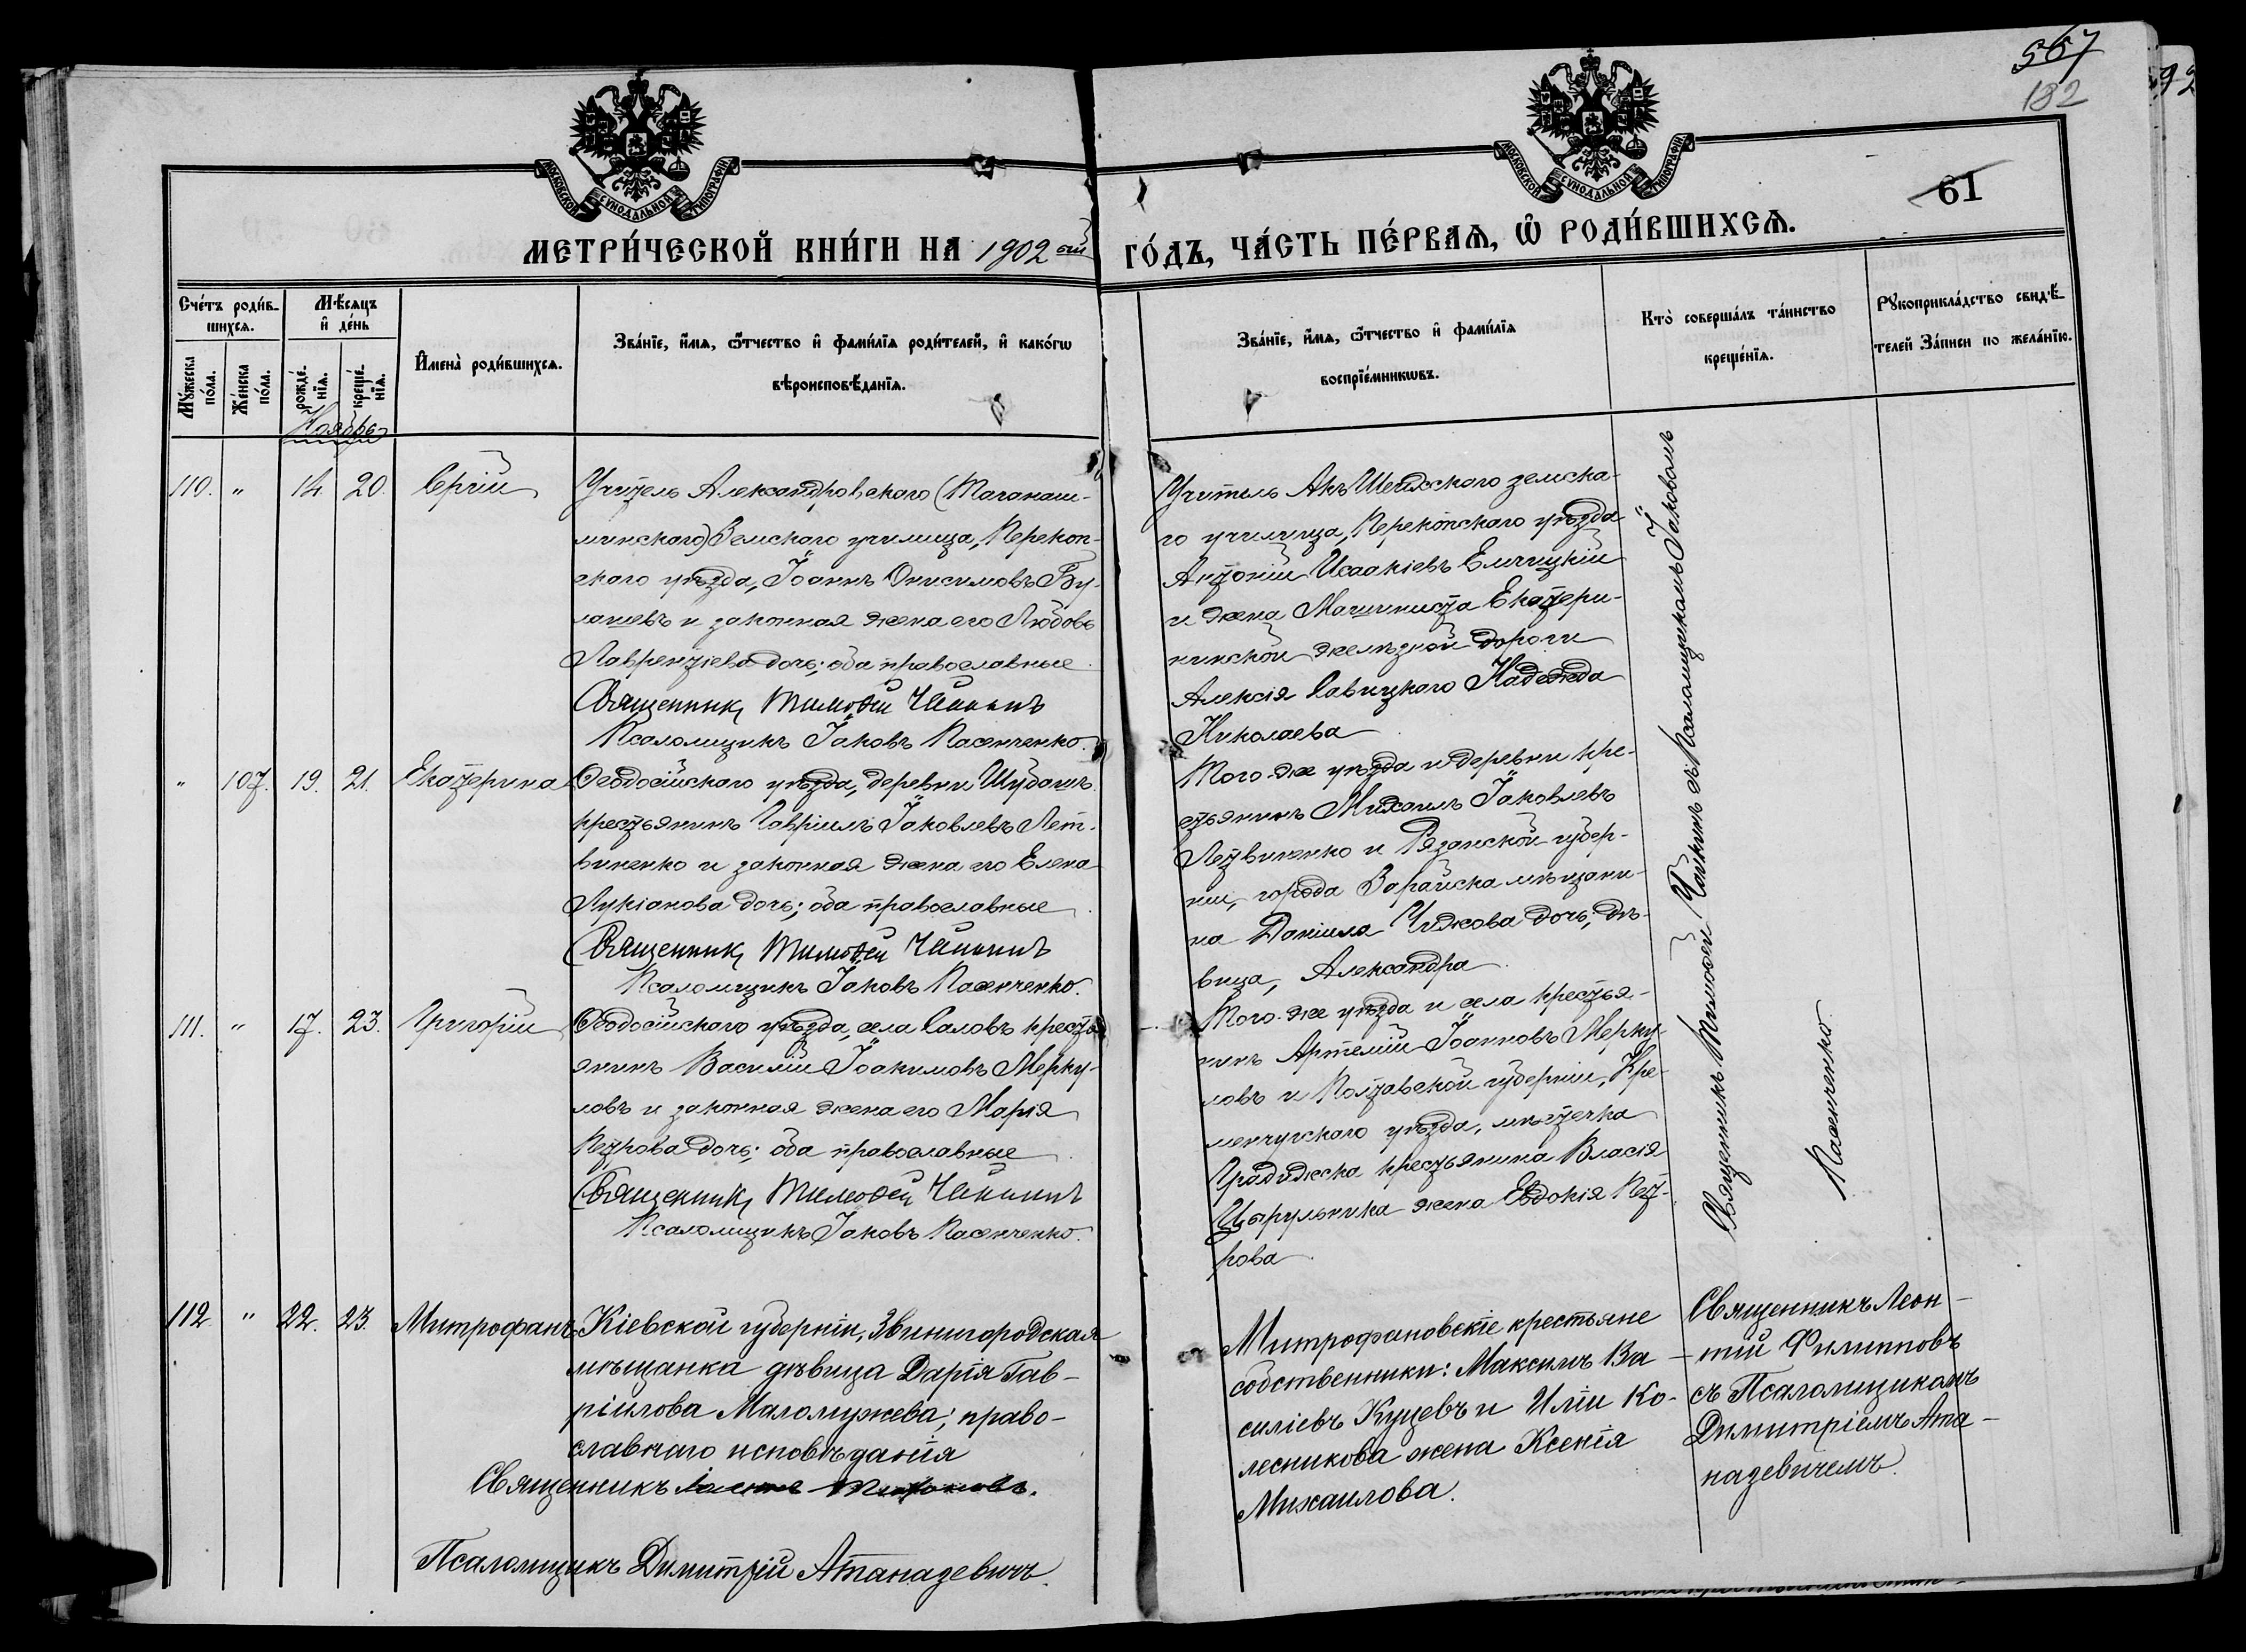 567
132
92
МОСКОВСКОЙ СУНОДАЛЬНОЙ ТИПОГРАФІИ
МОСКОВСКОЙ СУНОДАЛЬНОЙ ТИПОГРАФІИ
61
МЕТРИ́ЧЕСКОЙ КНИ́ГИ НА 1902 ый ГО́ДЪ, ЧА́СТЬ ПЕ́РВАѦ, Ѡ҆ РОДИ́ВШИХСѦ.
Сче́тъ роди́в-
шихсѧ.
Мꙋ́жеска по́ла.
Же́нска по́ла.
Мѣ́сѧцъ
и҆ де́нь
рожде́-
нїѧ.
креще́-
нїѧ.
И҆мена̀ роди́вшихсѧ.
Зва́нїе, и҆́мѧ, ѻ҆́тчество и҆ фами́лїѧ роди́телей, и҆ како́гѡ
вѣроисповѣ́данїѧ.
Зва́нїе, и҆́мѧ, ѻ҆́тчество и҆ фами́лїѧ
воспрїе́мникѡвъ.
Кто̀ соверша́лъ та́инство
креще́нїѧ.
Рꙋкоприкла́дство свидѣ́-
телей за́писи по жела́нїю.
Ноябрь
110. " 14. 20. Сергій
Учитель Александровскаго (Таганаш-
минскаго) Земскаго училища, Перекоп-
скаго уѣзда, Іоаннъ Онисимовъ Бу-
лашевъ и законная жена его Любовь
Лаврентіева дочь; оба православные.
Священникъ Тимоѳей Чайкинъ
Псаломщикъ Іаковъ Пасенченко.
Учитель Акъ Шеихскаго земска-
го училища, Перекопскаго уѣзда
Антоній Исаакіевъ Ельчицкій
и жена Машиниста Екатери-
нинской желѣзной дороги
Алексія Савицкаго Надежда
Николаева
" 107. 19. 21. Екатерина
Ѳеодосійскаго уѣзда, деревни Шубашъ
крестьянинъ Гавріилъ Іаковлевъ Лет-
виненко и законная жена его Елена
Лукіанова дочь; оба православные.
Священникъ Тимоѳей Чайкинъ
Псаломщикъ Іаковъ Пасенченко.
Того-же уѣзда и деревни кре-
стьянинъ Михаилъ Іаковлевъ
Летвиненко и Рязанской губер-
ніи, города Зарайска мѣщани-
на Даніила Чижова дочь, дѣ-
вица, Александра
111. " 17. 23. Григорій
Ѳеодосійскаго уѣзда, села Саловъ кресть-
янинъ Василій Іоакимовъ Мерку-
ловъ и законная жена его Марія
Петрова дочь; оба православные.
Священникъ Тимоѳей Чайкинъ
Псаломщикъ Іаковъ Пасенченко.
Того-же уѣзда и села крестья-
нинъ Артемій Іоанновъ Мерку-
ловъ и Полтавской губерніи, Кре-
менчугскаго уѣзда, мѣстечка
Градижска крестьянина Власія
Цырульника жена Евдокія Пет-
рова
Священникъ Тимоѳей Чайкинъ съ Псаломщикомъ Іаковомъ
Пасенченко
112. " 22. 23. Митрофанъ
Кіевской губерніи, Звенигородская
мѣщанка дѣвица Дарія Гав-
ріилова Маломужева; право-
славнаго исповѣданія
Священникъ
Псаломщикъ Димитрій Атаназевичъ.
Митрофановскіе крестьяне
собственники: Максимъ Ва-
силіевъ Куцевъ и Иліи Ко-
лесникова жена Ксенія
Михаилова.
Священникъ Леон-
тій Филипповъ
съ Псаломщикомъ
Димитріемъ Ата-
назевичемъ.